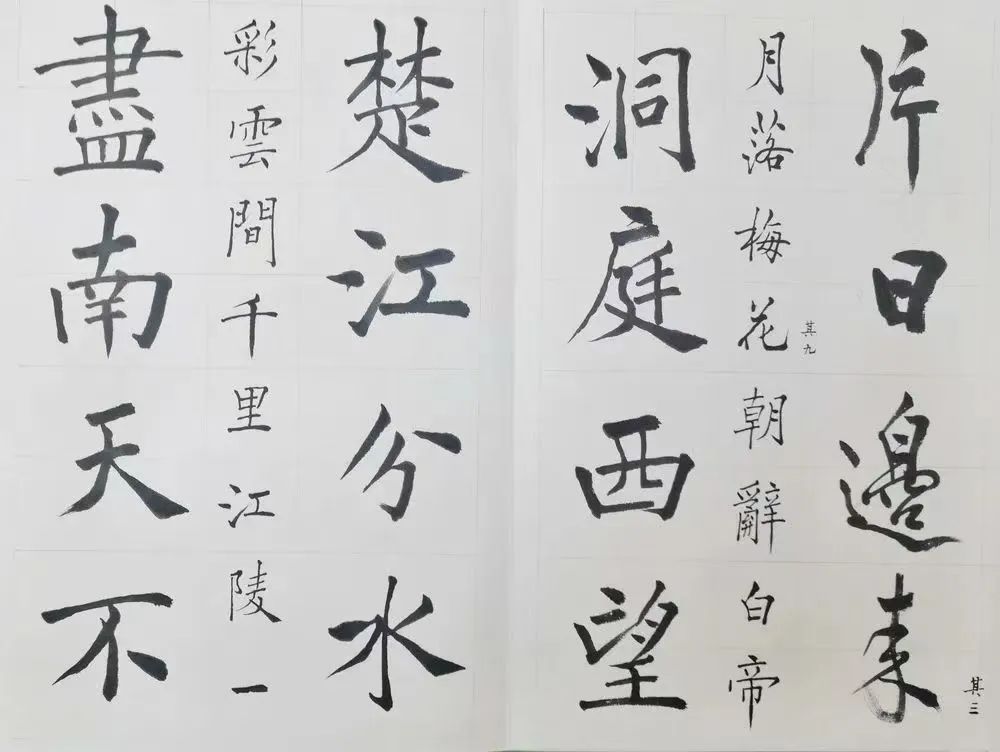 片日邊来
其三
月落梅花
其九
朝辭白帝
洞庭西望
楚江分水
彩雲間千里江陵一
盡南天不